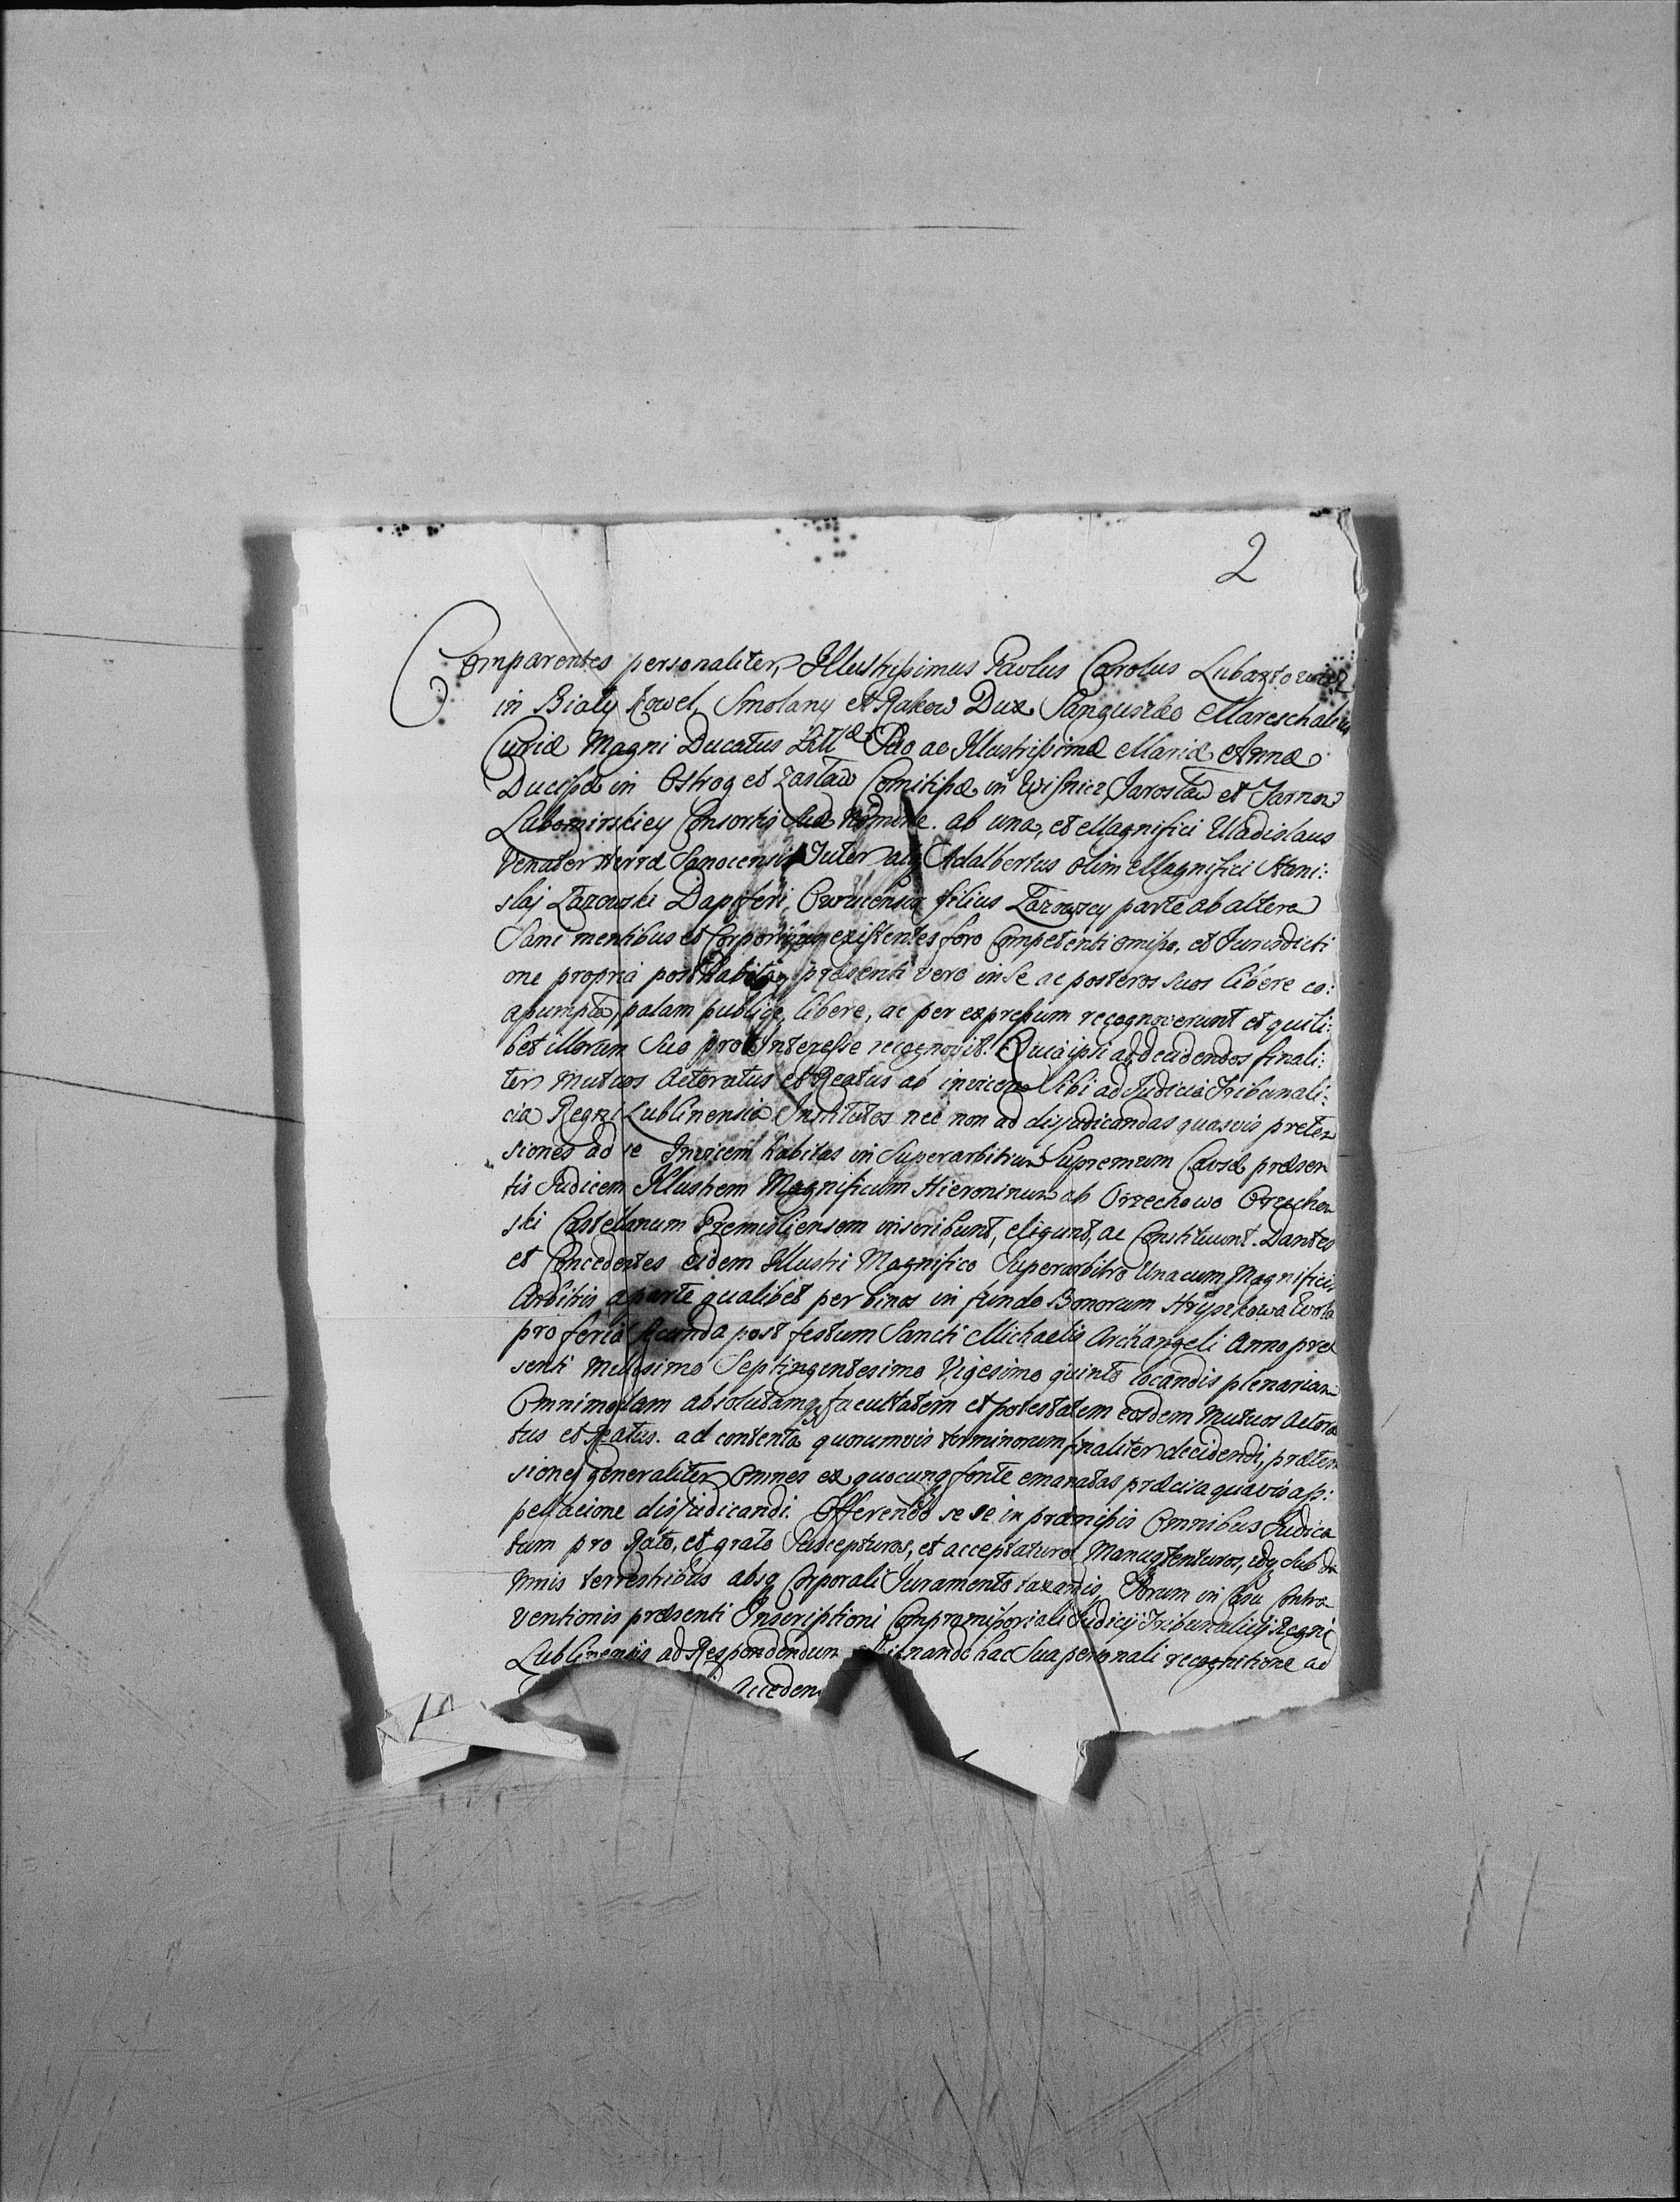 2
Comparentes personaliter, Illustrissimus Paulus Carolus Lubartowicz
in Biały Kowel, Smolany et Rakow Dux Sanguszko Mareschalus
Curiæ Magni Ducatus Litt:æ Suo ac Illustrissimæ Mariæ Annæ
Ducissæ in Ostrog et Zasław Comitissæ in Wisnicz, Jarosław et Tarnow
Lubomirskiey Consortis Suæ Nomine. ab una, et Magnifici Uladislaus
Venator terræ Sanocensis Adalbertus olim Magnifici Stani:
slai Łazowski Dapiferi, Owrucensis filius Łazowscy parte ab altera
Sani mentibus et Corporibus existentes foro Competenti omisso, et Jurisdicti
one propria posthabita, præsenti vero in Se ac posteros suos libere co:
assumpta, palam publice, libere, ac per expressum recognoverunt et quili:
bet illorum Suo pro Interesse recognovit. Quia ipsi ad decidendos finali:
ter mutuos Actoratus et Reatus ab invicem Sibi ad Judicia Tribunali:
cia Regni Lublinensia Institutos nec non ad disjudicandas quasvis preten
siones ad se Invicem habitas in Superarbitrum Supremum Causæ præsen
tis Judicem Illustrem Magnificum Hieronimum ab Orzechowo Orzechow
ski Castellanum Premisliensem inscribunt, eligunt, ac Constituunt. Dantes
et Concedentes eidem Illustri Magnifico Superarbitro Unacum Magnificis
Arbitris a parte qualibet per binos in fundo Bonorum Hryszkowa Wola
pro feria Secunda post festum Sancti Michaelis Archangeli Anno præ
senti Millesimo Septingentesimo Vigesimo quinto locandis plenariam
Omnimodam absolutamq facultatem et potestatem eosdem Mutuos Actora
tus et Reatus. ad contenta quorumvis terminorum finaliter decidendi, præten
siones generaliter Omnes ex quocunq fonte emanatas præcisa quavis ap:
pellacione disjudicandi. Offerendo se se in præmissis Omnibus Judica
tum pro Rato, et grato Suscepturos, et acceptaturos Manuqtenturos, idq Sub da
mnis terrestribus absq Corporali Juramento taxandis, Forum in Casu Contra
ventionis præsenti Inscriptioni Compromissoriali Judicij Tribunalitij Regni
Lublinensis ad Respondendum hac Sua personali recognitione ad
Acceden